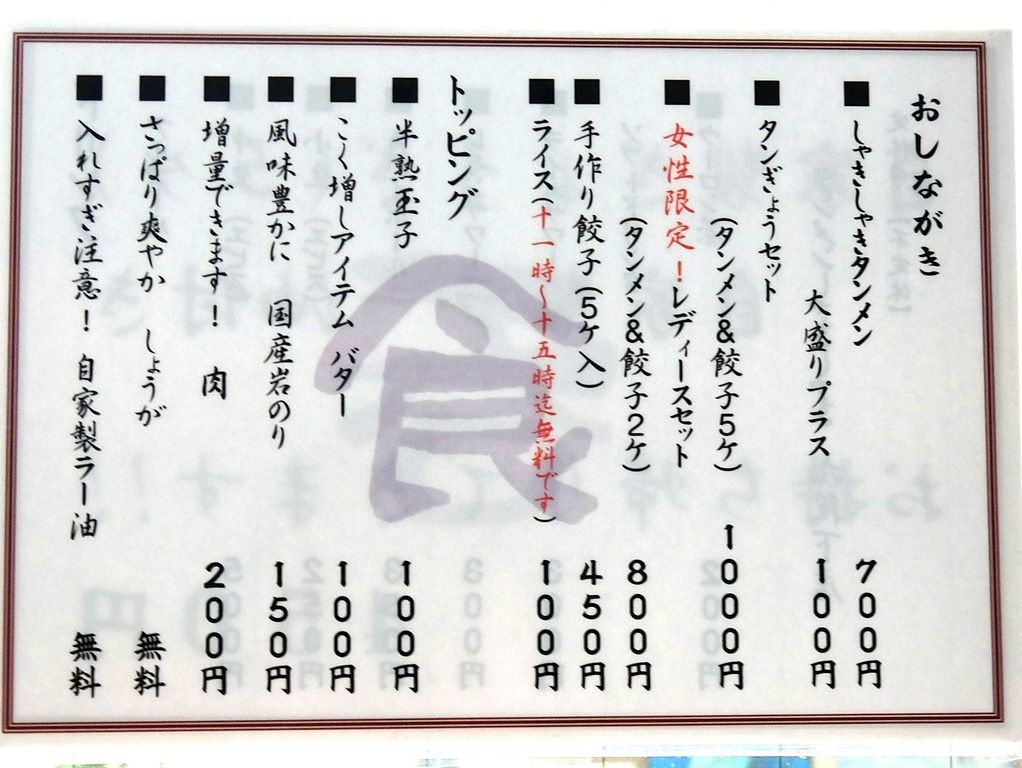 おしながき
■しゃきしゃきタンメン 700円
大盛りプラス 100円
■タンぎょうセット
(タンメン&餃子5ケ) 1000円
■女性限定!レディースセット
(タンメン&餃子2ケ) 800円
■手作り餃子(5ケ入) 450円
■ライス(十一時〜十五時迄無料です) 100円
トッピング
■半熟玉子 100円
■こく増しアイテム バター 100円
■風味豊かに 国産岩のり 150円
■増量できます! 肉 200円
■さっぱり爽やか しょうが 無料
■入れすぎ注意! 自家製ラー油 無料
食